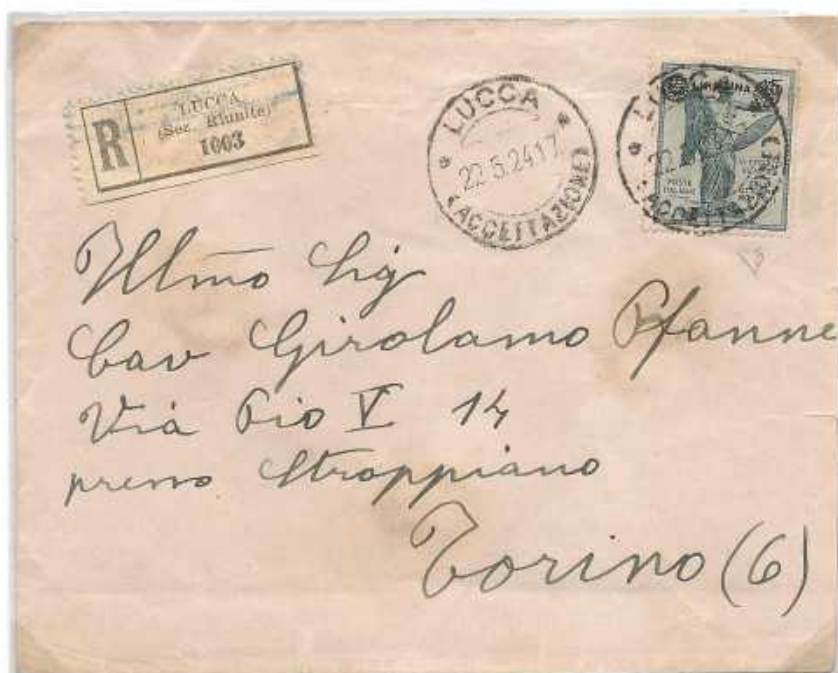 R
LUCCA
(Sez. Riunite)
1003
LUCCA
22.5.24 17
(ACCETTAZIONE)
LUCCA
LIRE UNA
POSTE
ITALIANE
(ACCETTAZIONE)
Illmo Sig
Cav Girolamo Pfanne
Via Pio V 14
presso Stroppiano
Torino (6)